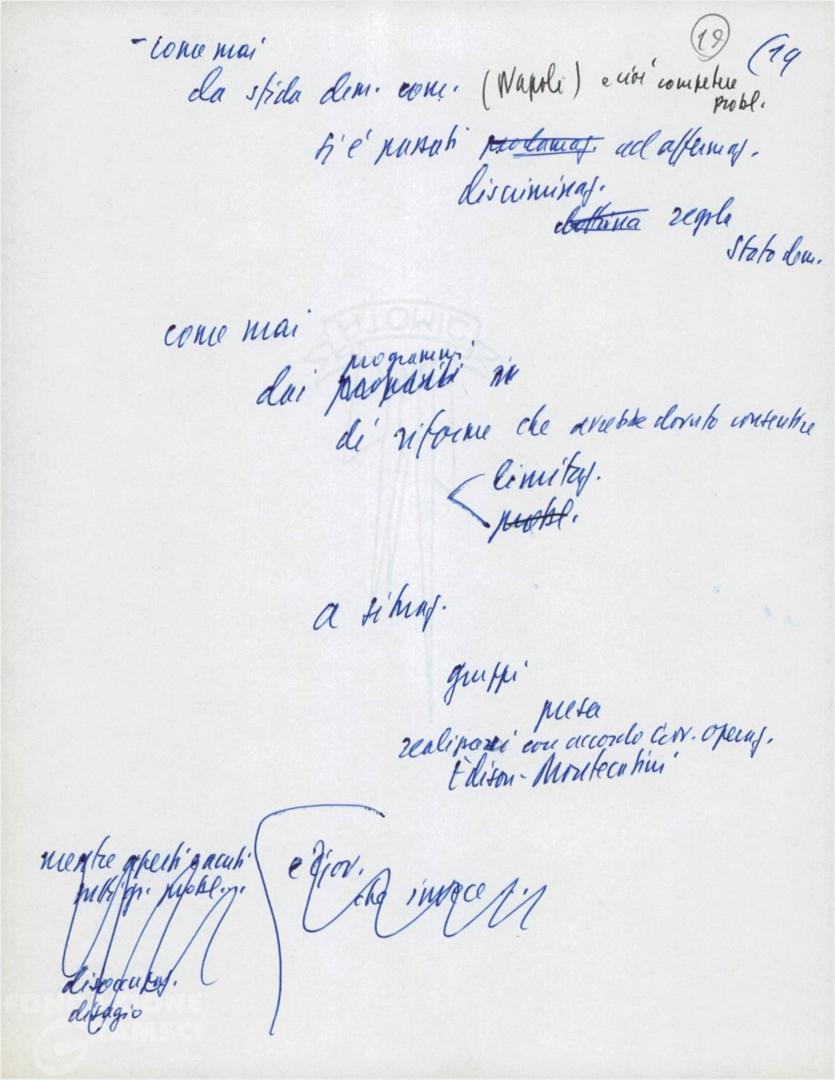 19 (19
- come mai
da sfida dem. com. (Napoli) e cioè competere
probl.
si è passati proclamaz. ad affermaz.
discriminaz.
dottrina regola
stato dem.
KATOWIC
come mai
programmi
dai
di riforme che avrebbe dovuto consentire
limitaz.
probl.
a situaz.
gruppi
presa
realizzarsi con accordo Gov. operaz.
Edison-Montecatini
mentre aperti
probl.
e Gov.
che invece
disoccupaz.
disagio
FONDAZIONE
GRAMSCI